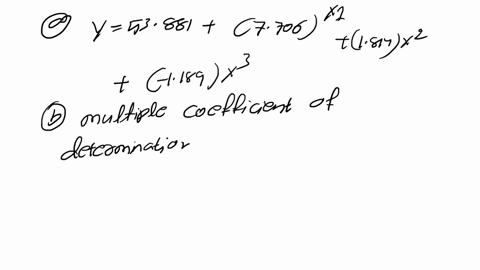 (a) y = 53.881 + (7.706) x1 + (1.814) x2
+ (-1.189) x3
(b) multiple coefficient of
determination